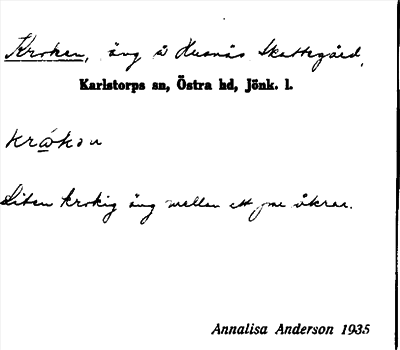 Kroken, äng å Husnäs Skattegård,
Karlstorps sn, Östra hd, Jönk. l.
krωkən
Liten krokig äng mellan ett åkrar.
Annalisa Anderson 1935